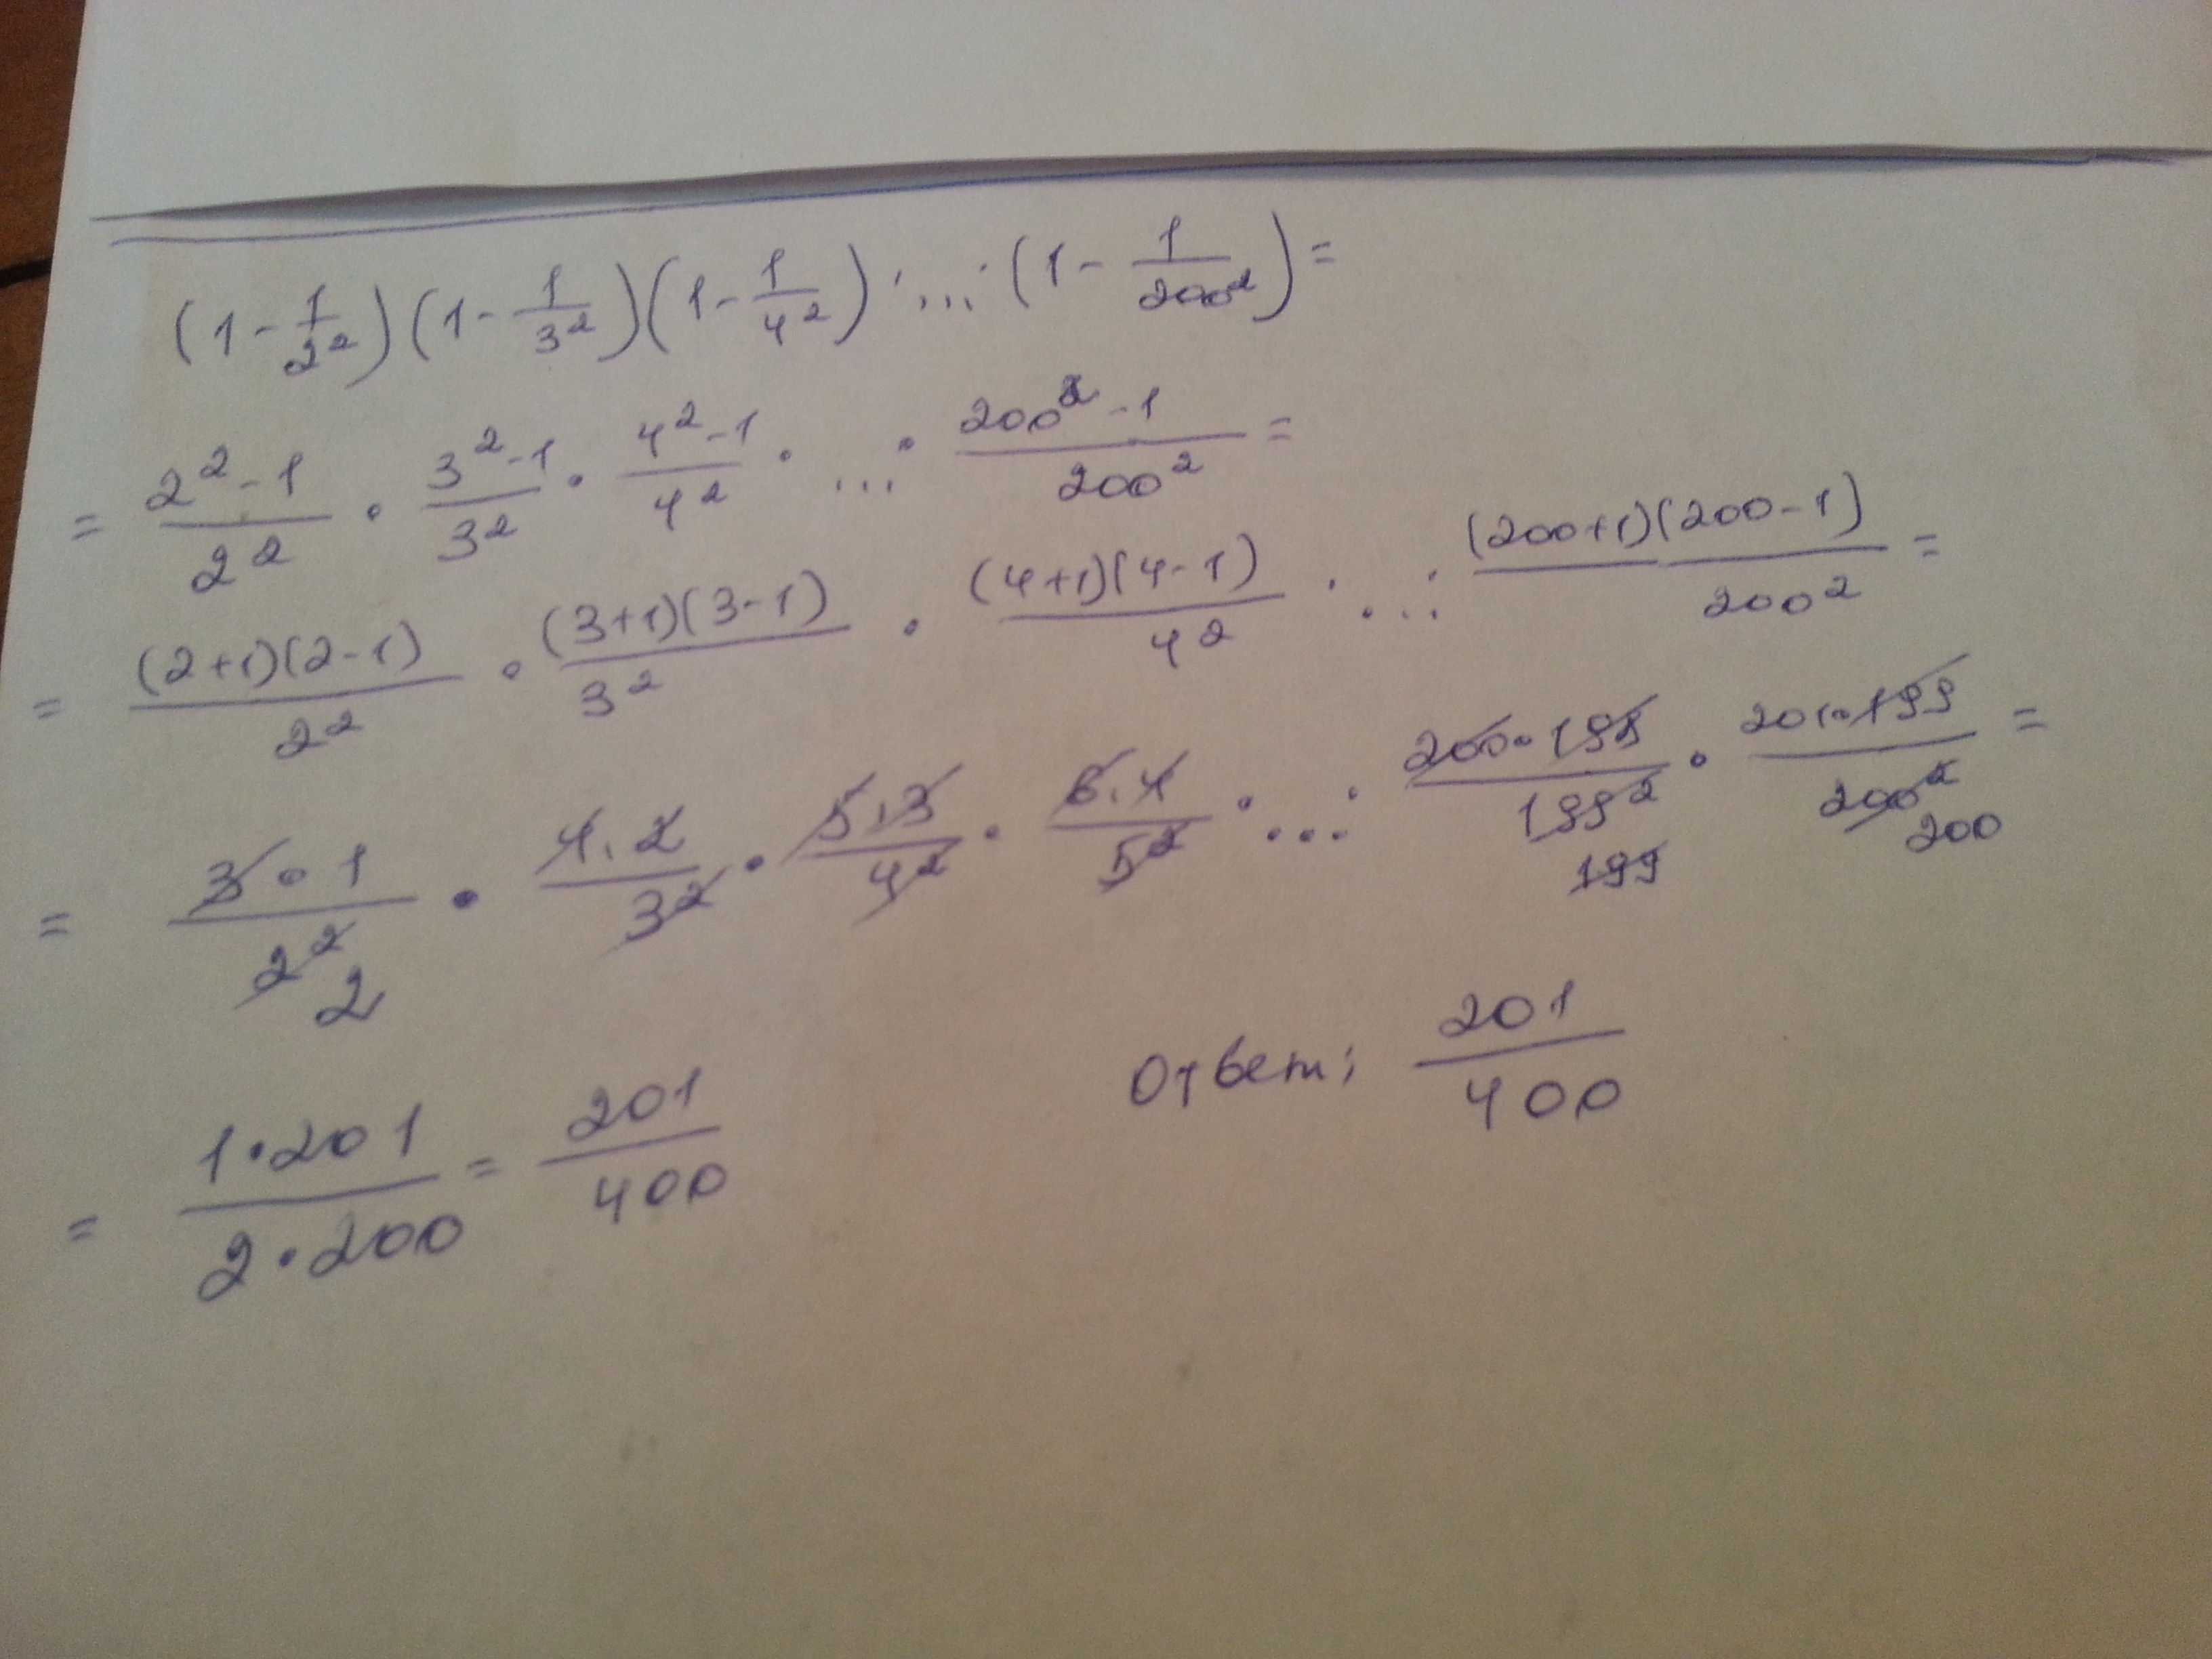 (1 - 1/2²)(1 - 1/3²)(1 - 1/4²) · ... · (1 - 1/200²) =
= (2² - 1)/2² · (3² - 1)/3² · (4² - 1)/4² · ... · (200² - 1)/200² =
= (2+1)(2-1)/2² · (3+1)(3-1)/3² · (4+1)(4-1)/4² · ... · (200+1)(200-1)/200² =
= 3·1/2² 2 · 4·2/3² · 5·3/4² · 6·4/5² · ... · 200·198/199² 199 · 201·199/200² 200 =
= 1·201/2·200 = 201/400 Ответ: 201/400